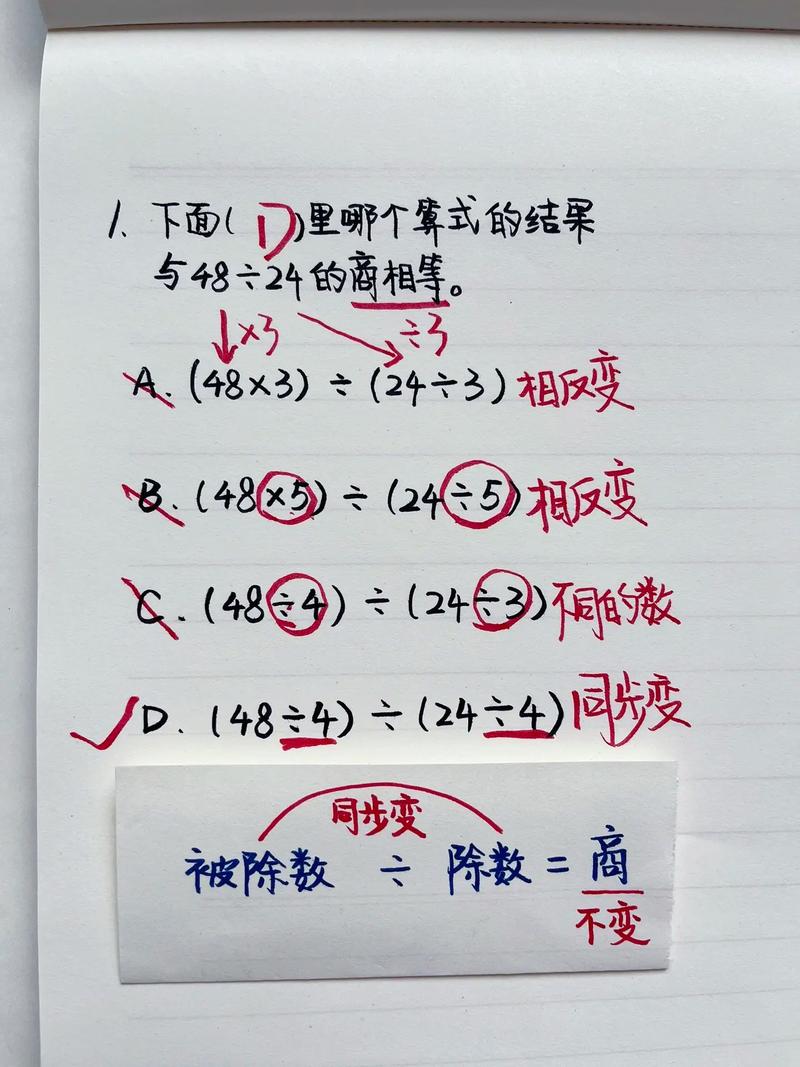 1. 下面(D)里哪个算式的结果
与48÷24的商相等。
×3 ÷3
A. (48×3) ÷ (24÷3) 相反变
B. (48×5) ÷ (24÷5) 相反变
C. (48÷4) ÷ (24÷3) 不同的数
✓D. (48÷4) ÷ (24÷4) 同步变
同步变
被除数 ÷ 除数 = 商
不变